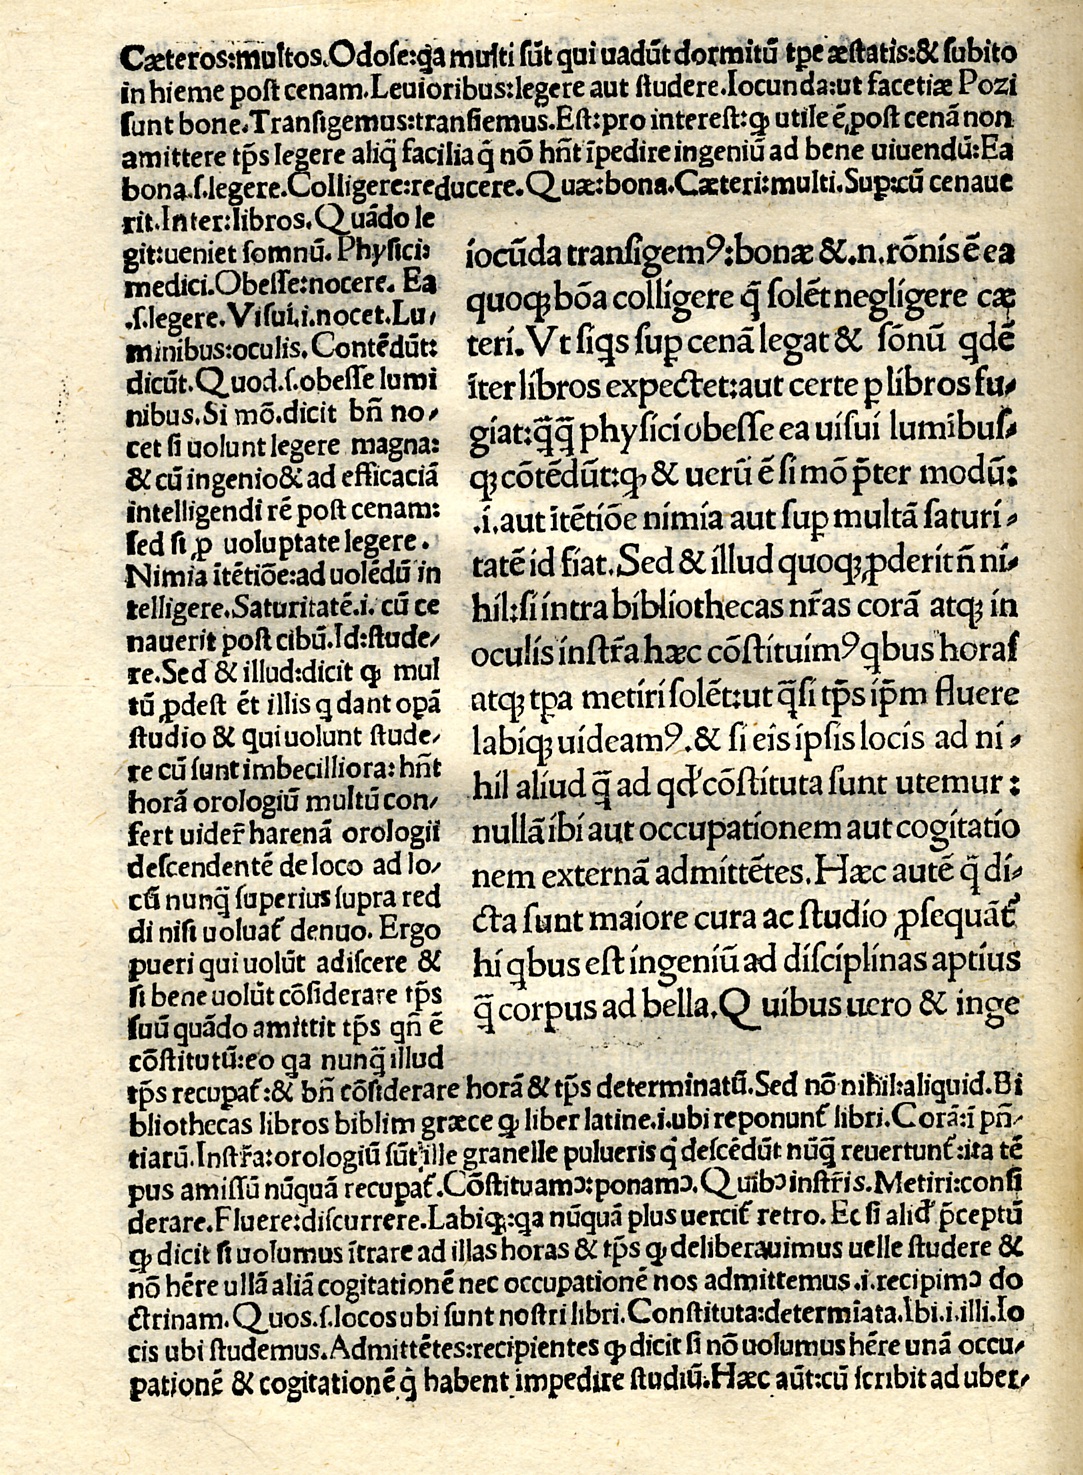 Cæteros:multos.Odose:qa multi sũt qui uadũt dormitũ tpe æstatis:& subito
in hieme post cenam.Leuioribus:legere aut studere.Iocunda:ut facetiæ Pozi
sunt bone.Transigemus:transiemus.Est:pro interest:ꝙ utile ẽ post cenã non
amittere tp̃s legere aliq̃ facilia q̃ nõ hñt ĩpedire ingeniũ ad bene uiuendũ:Ea
bona.ſ.legere.Colligere:reducere.Quæ:bona.Cæteri:multi.Sup:cũ cenaue
rit.Inter:libros.Quãdo le
git:ueniet somnũ.Physici:
medici.Obesse:nocere. Ea
.ſ.legere.Visui.i.nocet.Lu/
minibus:oculis.Contẽdũt:
dicũt.Quod.ſ.obesse lumi
nibus.Si mõ.dicit bñ no/
cet si uolunt legere magna:
& cũ ingenio & ad efficaciã
intelligendi rẽ post cenam:
sed si ꝓ uoluptate legere.
Nimia ĩtẽtiõe:ad uolẽdũ in
telligere.Saturitatẽ.i. cũ ce
nauerit post cibũ.Id:stude/
re.Sed & illud:dicit ꝙ mul
tũ ꝓdest ẽt illis q dant opã
studio & qui uolunt stude/
re cũ sunt imbecilliora:hñt
horã orologiũ multũ con/
fert uider̃ harenã orologii
descendentẽ de loco ad lo/
cũ nunq̃ superius supra red
di nisi uoluat᷑ denuo. Ergo
pueri qui uolũt adiscere &
si bene uolũt cõsiderare tp̃s
suũ quãdo amittit tp̃s qñ ẽ
cõstitutũ:eo qa nunq̃ illud
iocũda transigemꝰ:bonæ &.n.rõnis ẽ ea
quoqꝫ bõa colligere q̃ solẽt negligere cæ
teri.Vt siqs suꝑ cenã legat & sõnũ qdẽ
ĩter libros expectet:aut certe ꝑ libros fu/
giat:q̃q̃ physici obesse ea uisui luminibus/
qꝫ cõtẽdũt:ꝙ & uerũ ẽ si mõ p̃ter modũ:
.i.aut ĩtẽtiõe nimia aut suꝑ multã saturi/
tatẽ id fiat.Sed & illud quoqꝫ ꝓderit ñ ni/
hil:si intra bibliothecas nr̃as corã atqꝫ in
oculis instr̃a hæc cõstituimꝰ qbus horas
atqꝫ tꝑa metiri solẽt:ut q̃si tp̃s ip̃m fluere
labiqꝫ uideamꝰ.& si eis ipsis locis ad ni/
hil aliud q̃ ad qđ cõstituta sunt utemur:
nullã ibi aut occupationem aut cogitatio
nem externã admittẽtes.Hæc autẽ q̃ di/
cta sunt maiore cura ac studio ꝓsequãt᷑
hi qbus est ingeniũ ad disciplinas aptius
q̃ corpus ad bella.Quibus uero & inge
tp̃s recupat᷑:& bñ cõsiderare horã & tp̃s determinatũ.Sed nõ nihil:aliquid.Bi
bliothecas libros biblim græce ꝙ liber latine.i.ubi reponunt᷑ libri.Corã:ĩ pñ/
tiarũ.Instr̃a:orologiũ sũt ille granelle pulueris q̃ descẽdũt nũq̃ reuertunt᷑:ita tẽ
pus amissũ nũquã recupat᷑.Cõstituamꝰ:ponamꝰ.Quibꝰ instr̃is.Metiri:consi
derare.Fluere:discurrere.Labiqꝫ:qa nũquã plus uertit᷑ retro.Ec si aliđ p̃ceptũ
ꝙ dicit si uolumus ĩtrare ad illas horas & tp̃s ꝙ deliberauimus uelle studere &
nõ hẽre ullã aliã cogitationẽ nec occupationẽ nos admittemus.i.recipimꝰ do
ctrinam.Quos.ſ.locos ubi sunt nostri libri.Constituta:determĩata.Ibi.i.illi.lo
cis ubi studemus.Admittẽtes:recipientes ꝙ dicit si nõ uolumus hẽre unã occu/
pationẽ & cogitationẽ q̃ habent impedire studiũ.Hæc aũt:cũ scribit ad uber/